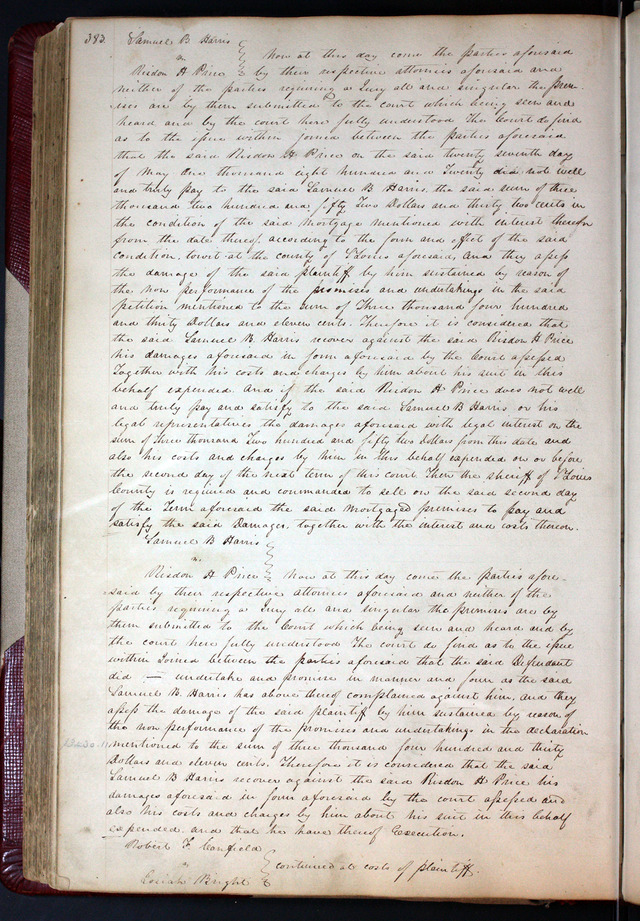 383.
Samuel B Harris
vs
Risdon H Price
Now at this day come the parties aforesaid
by their respective attornies aforesaid and
neither of the parties requiring a Jury all and singular the prem-
ises are by them submitted to the court which being seen and
heard and by the court here fully understood The Court do find
as to the issue within joined between the parties aforesaid
that the said Risdon H Price on the said twenty seventh day
of May one thousand eight hundred and Twenty did not well
and truly pay to the said Samuel B Harris the said sum of three
thousand two hundred and fifty Two Dollars and thirty two cents in
the condition of the said Mortgage mentioned with interest thereon
from the date thereof according to the form and effect of the said
condition. towit at the county of St Louis aforesaid, and they assess
the damage of the said plaintiff by him sustained by reason of
the non performance of the promises and undertakings in the said
petition mentioned to the sum of Three thousand four hundred
and thirty Dollars and eleven cents. Therefore it is considered that
the said Samuel B Harris recover against the said Risdon H Price
his damages aforesaid in form aforesaid by the Court assessed
together with his costs and charges by him about his suit in this
behalf expended. And if the said Risdon H Price does not well
and truly pay and satisfy to the said Samuel B Harris or his
legal representatives the damages aforesaid with legal interest on the
sum of three thousand Two hundred and fifty two Dollars from this date and
also his costs and charges by him in this behalf expended on or before
the second day of the next term of this court Then the sheriff of St Louis
County is required and commanded to sell on the said second day
of the Term aforesaid the said Mortgaged premises to pay and
satisfy the said Damages, together with the interest and costs thereon.
Samuel B Harris
vs
Risdon H Price
Now at this day come the parties afore-
said by their respective attornies aforesaid and neither of the
parties requiring a Jury all and singular the premises are by
them submitted to the Court which being seen and heard and by
the court here fully understood The court do find as to the issue
within Joined between the parties aforesaid that the said Defendant
did — undertake and promise in manner and form as the said
Samuel B. Harris has above thereof complained against him, and they
assess the damage of the said plaintiff by him sustained by reason of
the non performance of the promises and undertakings in the declaration
mentioned to the sum of three thousand four hundred and thirty
Dollars and eleven cents. Therefore it is considered that the said
Samuel B Harris recover against the said Risdon H Price his
damages aforesaid in form aforesaid by the court assessed and
also his costs and charges by him about his suit in this behalf
expended. and that he have thereof Execution.
Robert F Canfield
vs
Josiah Bright
continued at costs of plaintiff.